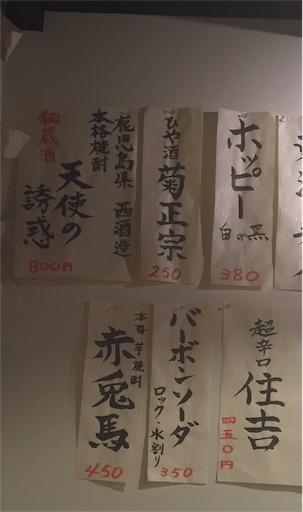 ホッピー
白の黒
380
ひや酒
菊正宗
250
鹿児島県 西酒造
本格焼酎
天使の
誘惑
秘蔵酒
800円
超辛口
住吉
四五〇円
バーボンソーダ
ロック・水割り
350
本格芋焼酎
赤兎馬
450